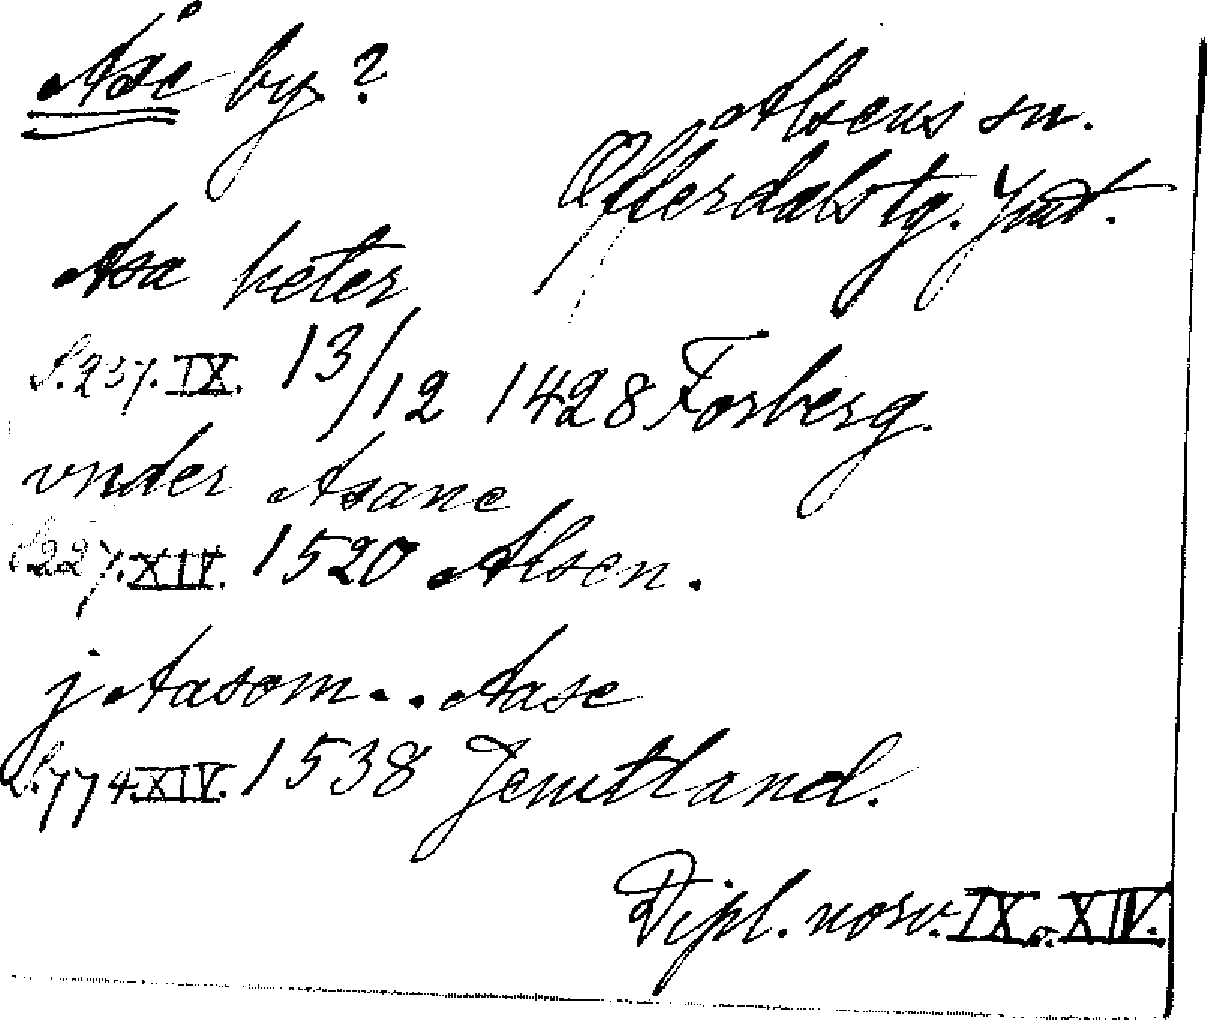 Åse by?
Alsens sn.
Offerdals tg. Jmt.
Asa heter
S. 237. IX. 13/12 1428 Forberg.
vnder Asane
S. 227. XIV. 1520 Alsen.
j Aasom. . Aase
S. 774. XIV. 1538 Jemtland.
Dipl. norv. IX o. XIV.